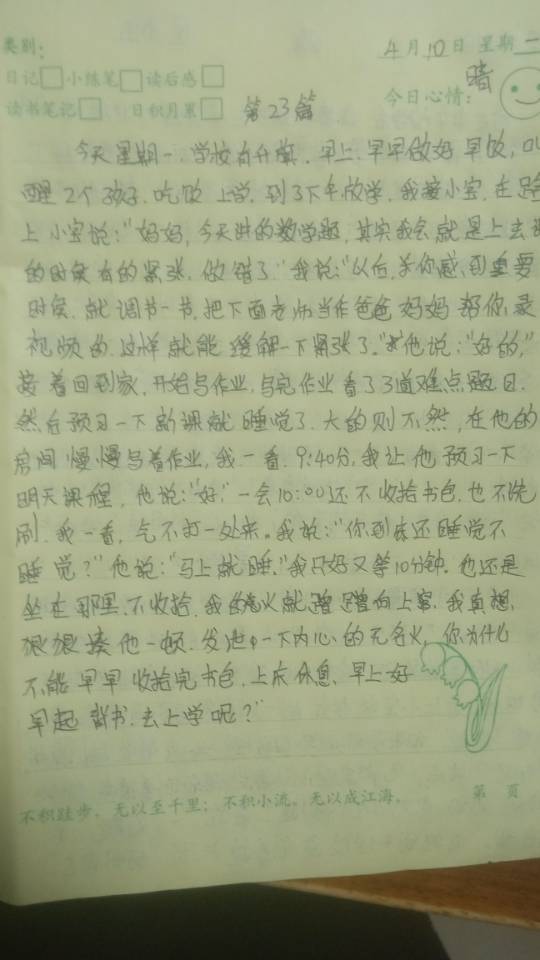 类别: 4月10日 星期一
日记 小练笔 读后感
读书笔记 日积月累 今日心情: 晴
第23篇
今天星期一.学校有升旗.早上.早早做好早饭,叫
醒2个孩子.吃饭上学.到了下午放学.我接小宝.在路
上小宝说:"妈妈,今天讲的数学题,其实我会就是上去讲
的时候有的紧张.做错了."我说:"以后,当你感到重要
时候.就调节一节,把下面老师当作爸爸妈妈帮你录
视频的.这样就能缓解一下紧张了。"他说:"好的,"
接着回到家.开始写作业.写完作业看了3道难点题目.
然后预习一下新课就睡觉了.大的则不然,在他的
房间慢慢写着作业,我一看.9:40分,我让他预习一下
明天课程,他说:"好,"一会10:00还不收拾书包.也不洗
刷.我一看,气不打一处来。我说:"你到底还睡觉不
睡觉?"他说:"马上就睡."我只好又等10分钟.他还是
坐在那里.不收拾.我的怒火就蹭蹭向上窜.我真想.
狠狠揍他一顿.发泄一下内心的无名火.你为什么
不能早早收拾完书包.上床休息.早上好
早起背书.去上学呢?"
不积跬步,无以至千里;不积小流,无以成江海。 第 页